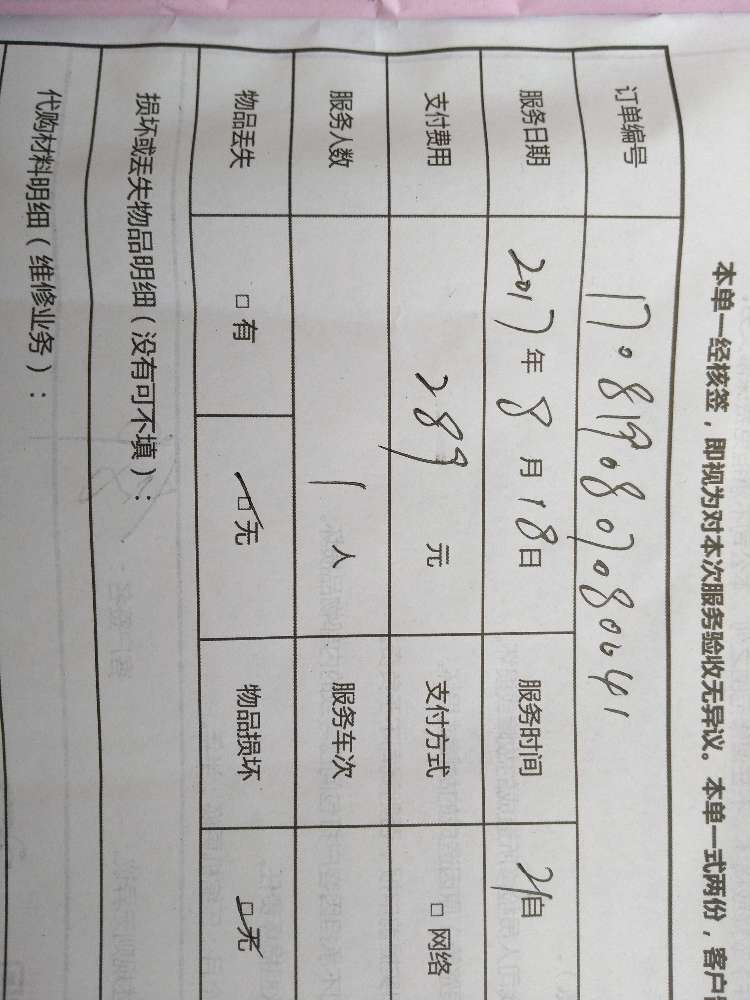 本单一经核签，即视为对本次服务验收无异议。本单一式两份，客户
订单编号
服务日期 2017年8月18日 服务时间 自
支付费用 289元 支付方式 □网络
服务人数 1人 服务车次
物品丢失 □有 □无 物品损坏 □无
损坏或丢失物品明细（没有可不填）：
代购材料明细（维修业务）：